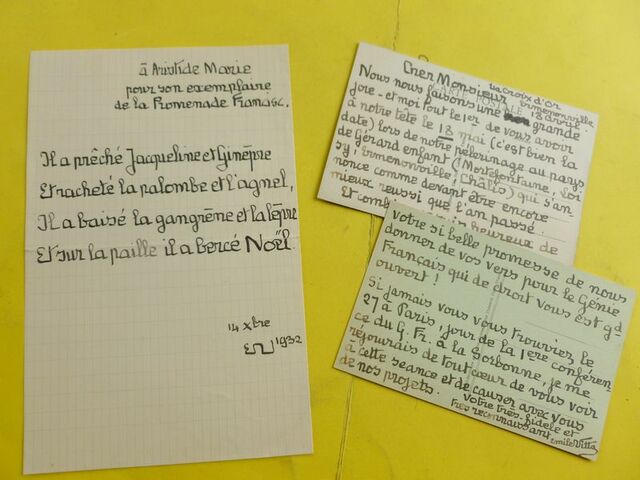 à Aristide Marie
pour son exemplaire
de la Promenade Francisc.
Il a prêché Jacqueline et Ginèpre
Et racheté la palombe et l'agnel,
Il a baisé la gangrène et la lèpre
Et sur la paille il a bercé Noël.
14 Xbre
1932
La Croix d'Or
Ermenonville
18 avril.
Cher Monsieur
CARTE POSTALE
Nous nous faisons une grande
joie - et moi tout le 1er de vous avoir
à notre tête le 18 mai (c'est bien la
date) lors de notre pèlerinage au pays
de Gérard enfant (Mortefontaine, Loi
sy, Ermenonville, Châlis) qui s'an
nonce comme devant être encore
mieux reussi que l'an passé.
Et heureux de
votre si belle promesse de nous
donner de vos vers pour le Génie
Français qui de droit vous est gd
ouvert !
Si jamais vous vous trouviez le
27 à Paris, jour de la 1ere conféren
ce du G. Fr. à la Sorbonne, je me
réjouirais de tout cœur de vous voir
à cette seance et de causer avec vous
de nos projets.
Votre très fidele et
tres reconnaissant